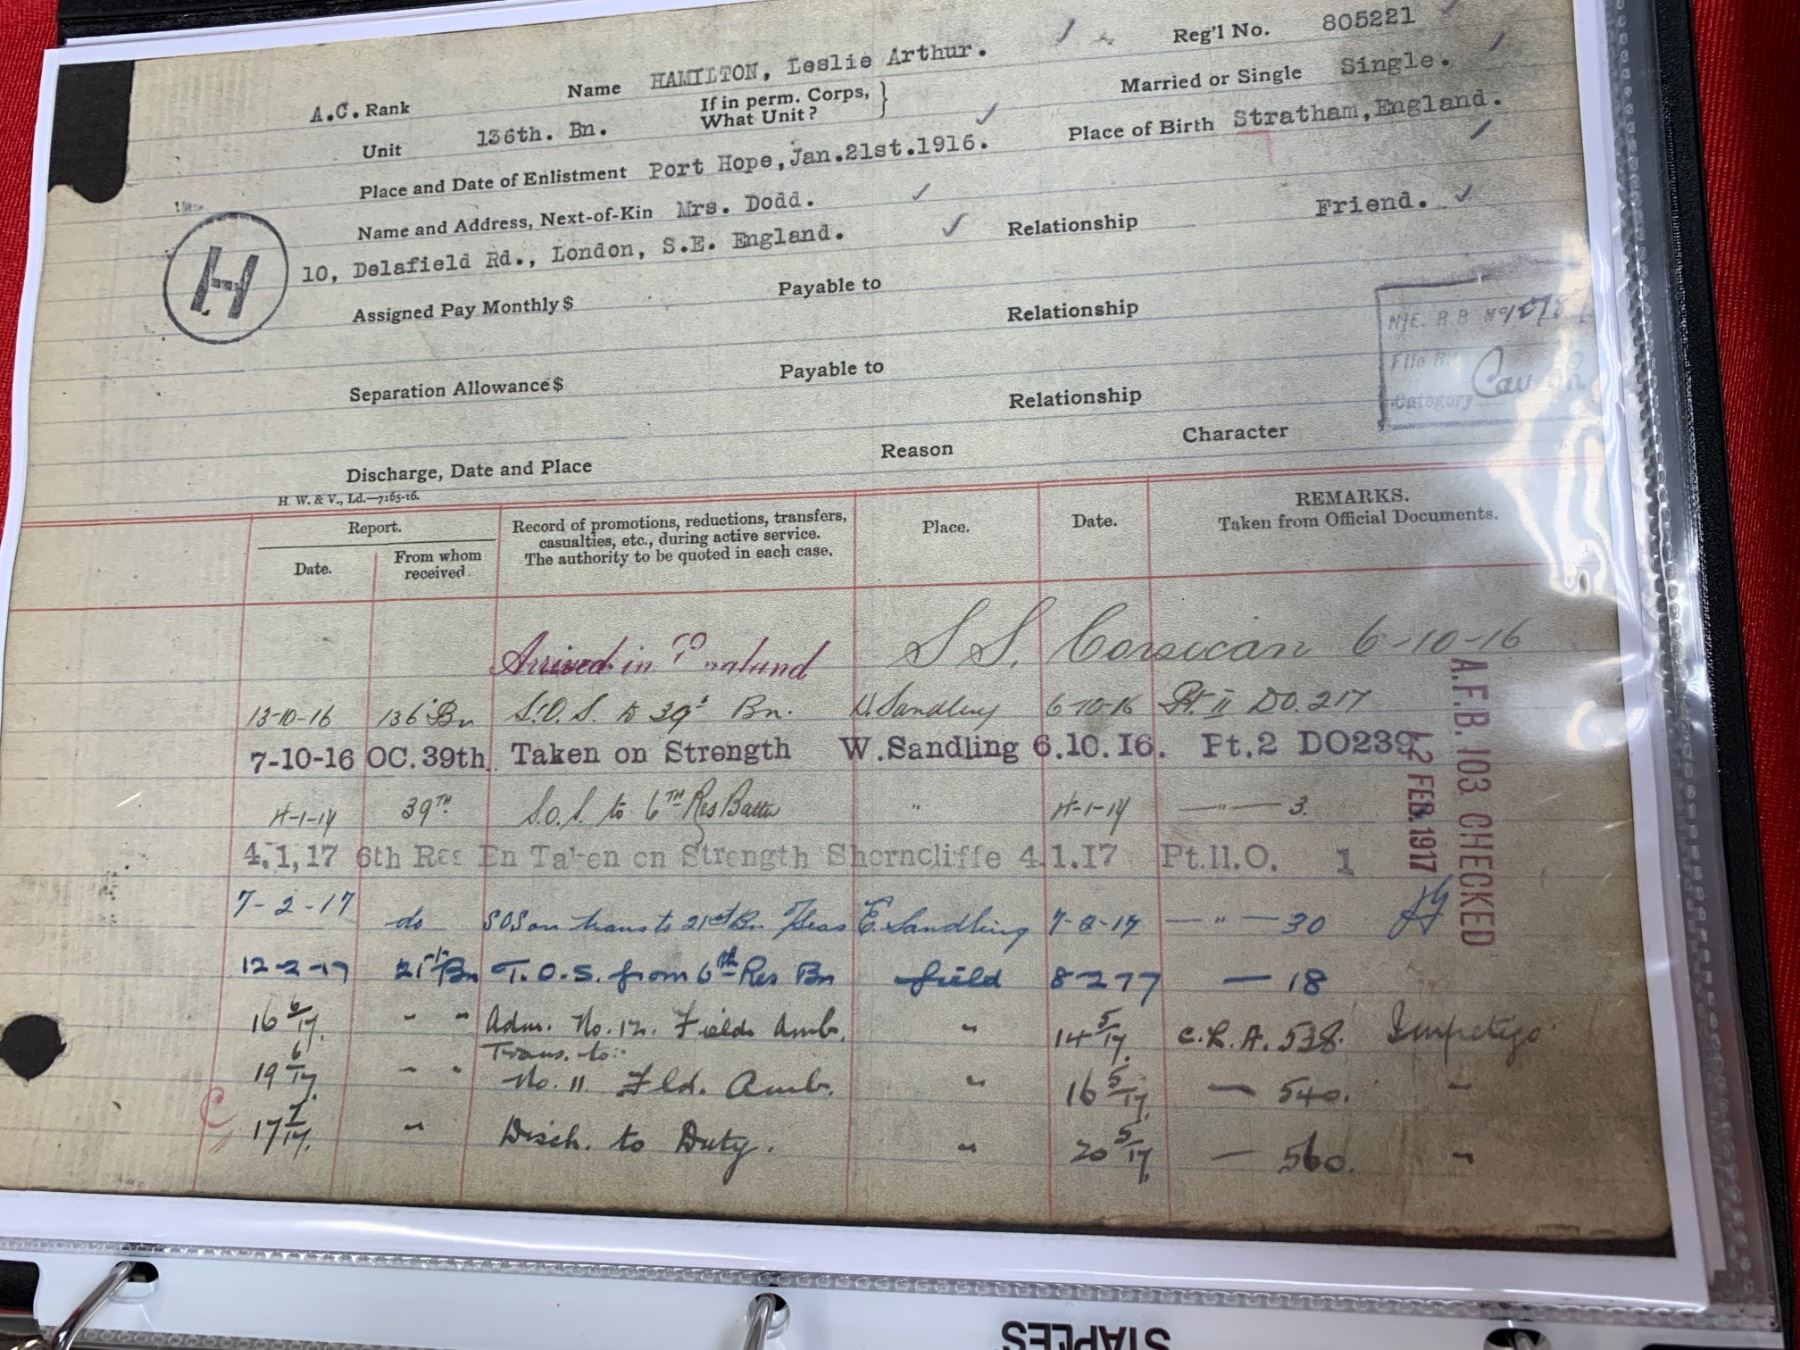 Name HAMILTON, Leslie Arthur. Reg'l No. 805221
A.C. Rank If in perm. Corps, What Unit? } Married or Single Single.
Unit 136th. Bn. Place of Birth Stratham, England.
Place and Date of Enlistment Port Hope, Jan.21st.1916.
Name and Address, Next-of-Kin Mrs. Dodd. Relationship Friend.
H
10, Delafield Rd., London, S.E. England.
Assigned Pay Monthly $ Payable to Relationship
File
Category
Separation Allowance $ Payable to Relationship
Discharge, Date and Place Reason Character
H. W. & V., Ld.—7165-16.
Report. Date. From whom received.
Record of promotions, reductions, transfers, casualties, etc., during active service. The authority to be quoted in each case.
Place. Date.
REMARKS. Taken from Official Documents.
Arrived in England S.S. Corsican 6-10-16
13-10-16 136 Bn S.O.S. to 39th Bn. W. Sandling 6-10-16 Pt. II DO. 217
7-10-16 OC. 39th. Taken on Strength W. Sandling 6.10.16. Pt.2 DO239
4-1-17 39TH S.O.S. to 6TH Res Battn " 4-1-17 — " — 3.
4.1.17 6th Res Bn Taken on Strength Shorncliffe 4.1.17 Pt.11.O. 1
7-2-17 do SOS on trans to 21st Bn O/Seas E. Sandling 7-2-17 — " — 30
12-2-17 21st Bn T.O.S. from 6th Res Bn field 8-2-17 — 18
16 6/17. " " Adm. No. 12. Field Amb. " 14 5/17. C.L.A. 538. Impetigo
19 6/17. " " Trans. to: No. 11 Fld. Amb. " 16 5/17. — 540. "
C
17 7/17. " Disch. to Duty. " 20 5/17. — 560. "
A.F.B. 103 CHECKED
2 FEB. 1917
STAPLES